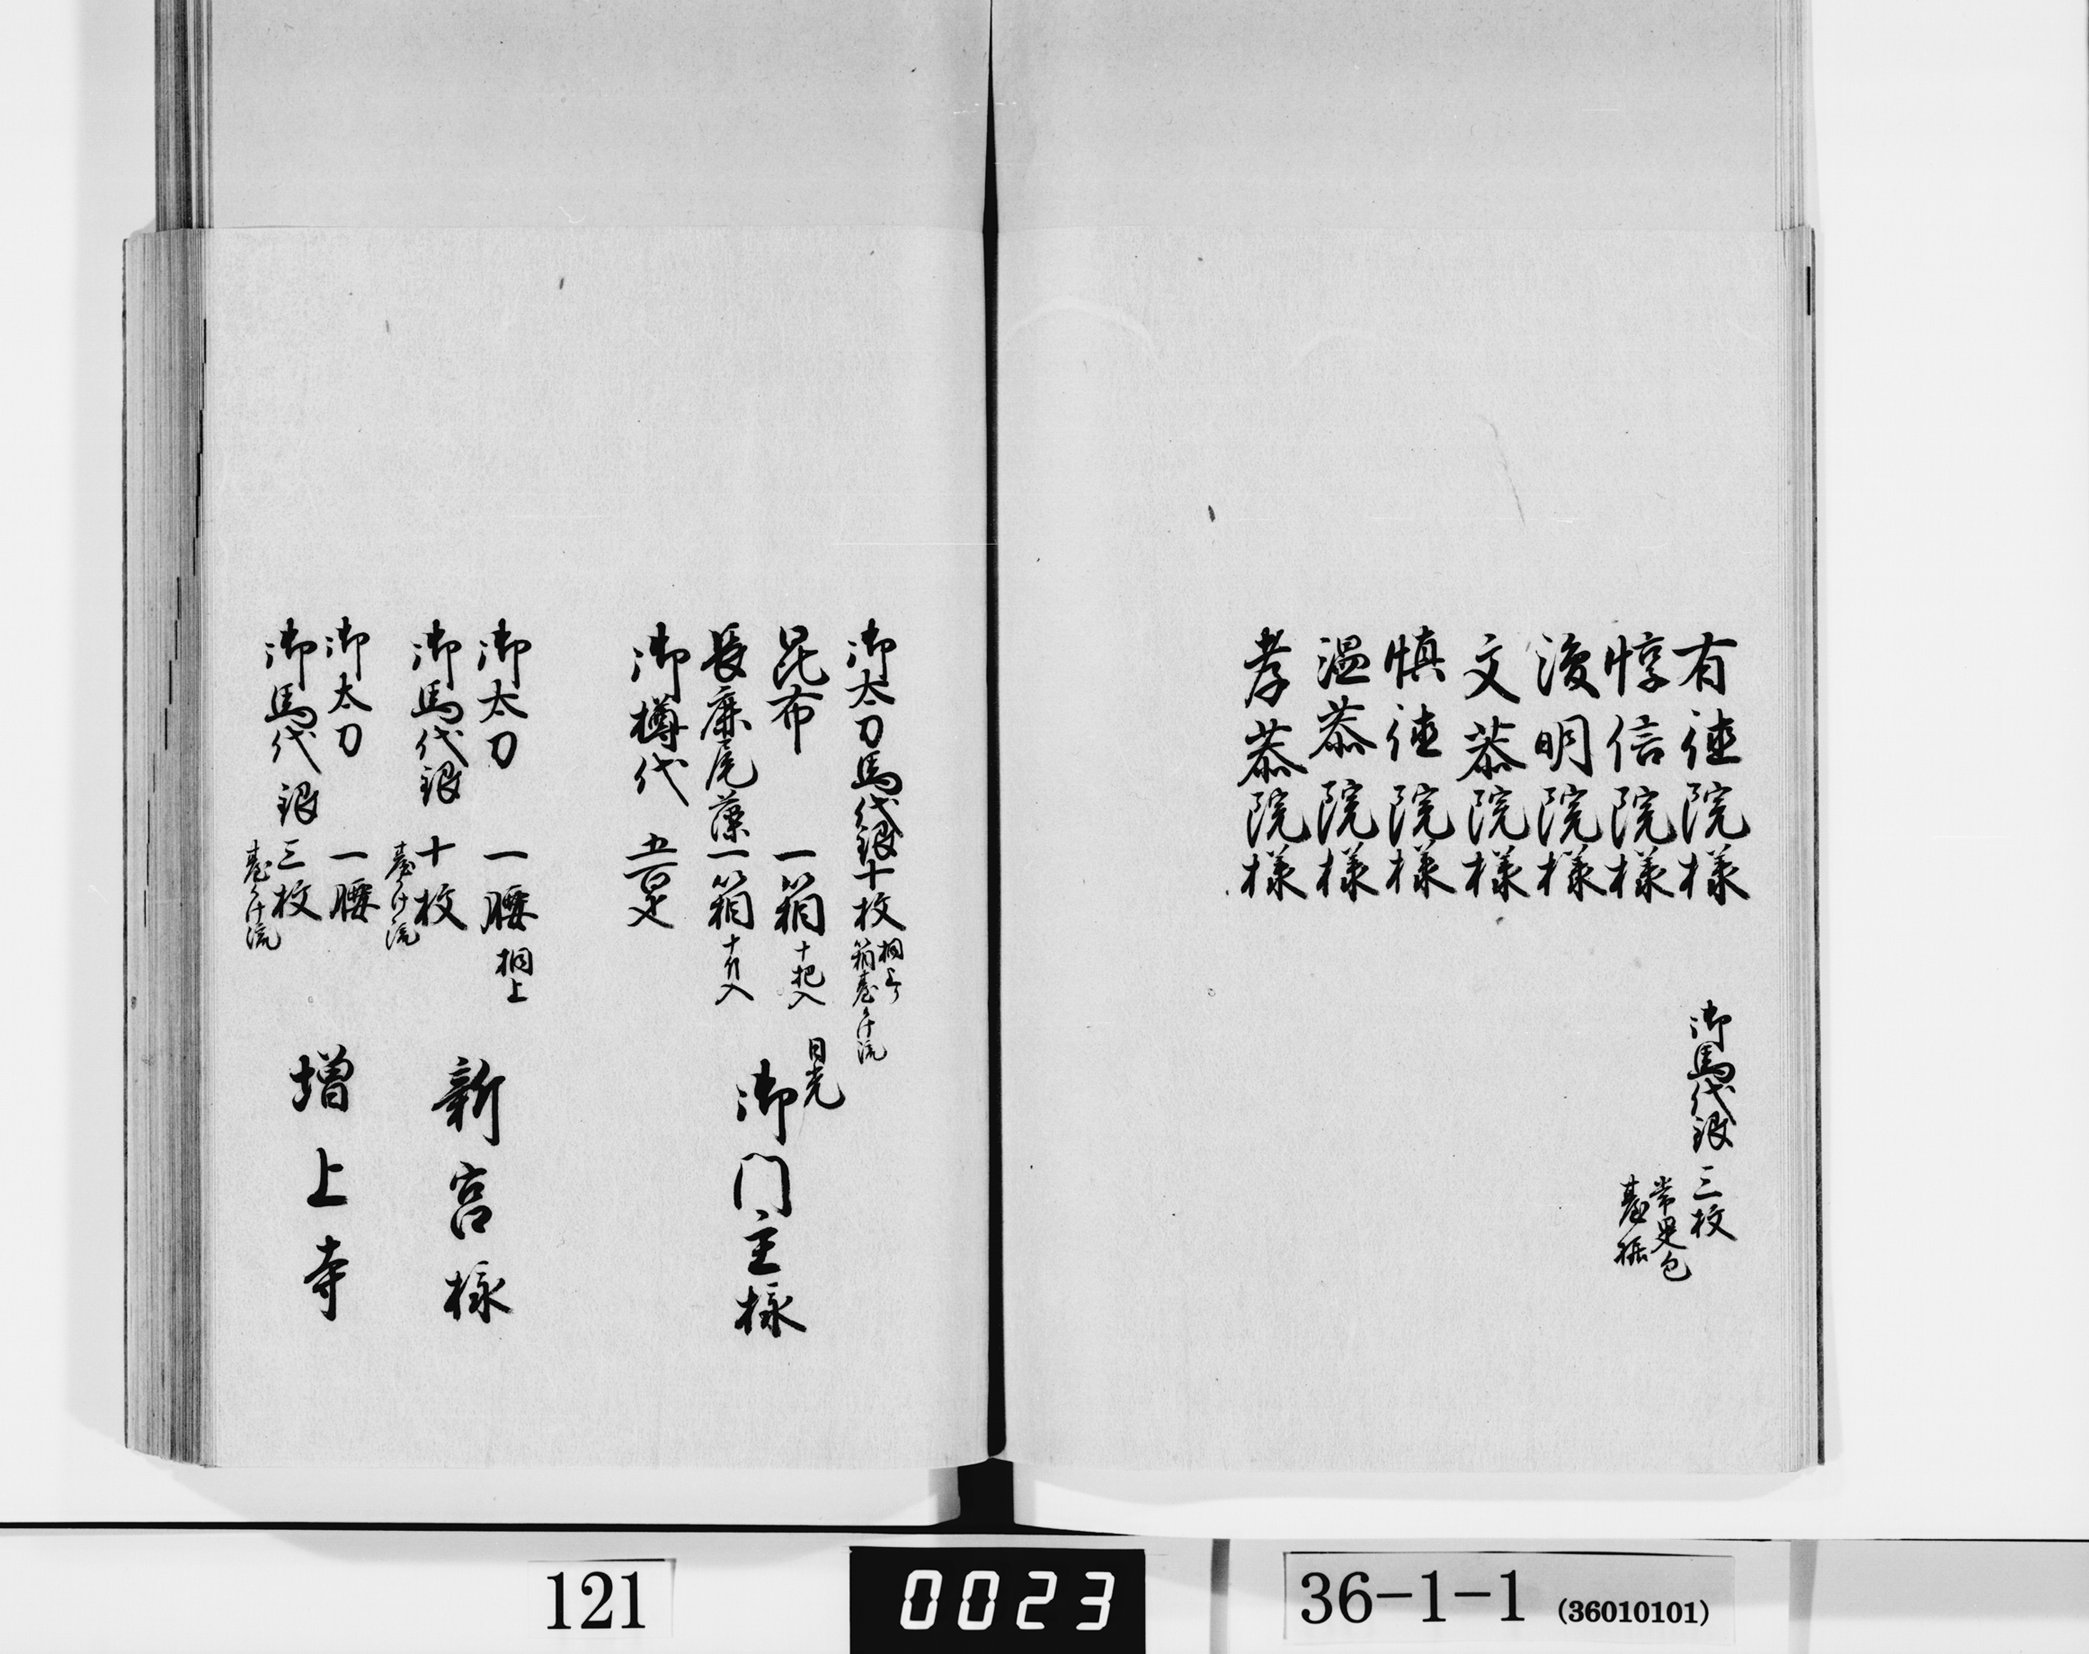 有徳院様
御馬代銀三枚
常是包
臺据
惇信院様
後明院様
文恭院様
慎徳院様
温恭院様
孝恭院様
御太刀馬代銀十枚
桐
箱臺ヶ汁流
昆布 一箱 十把入
長鹿尾藻一箱 十斤入
御樽代 五百疋
日光
御門主様
御太刀 一腰 桐上
御馬代銀 十枚
臺ヶ汁流
新宮様
御太刀 一腰
御馬代銀 三枚
臺ヶ汁流
増上寺
121
0023
36-1-1 (36010101)